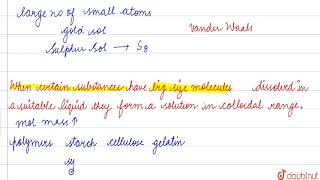 large no of small atoms
gold sol
Vander Waals
Sulphur Sol → S8
When certain substances have big size molecules dissolved in
a suitable liquid they form a solution in colloidal range.
mol. mass ↑
polymers starch cellulose gelatin
doubtnut